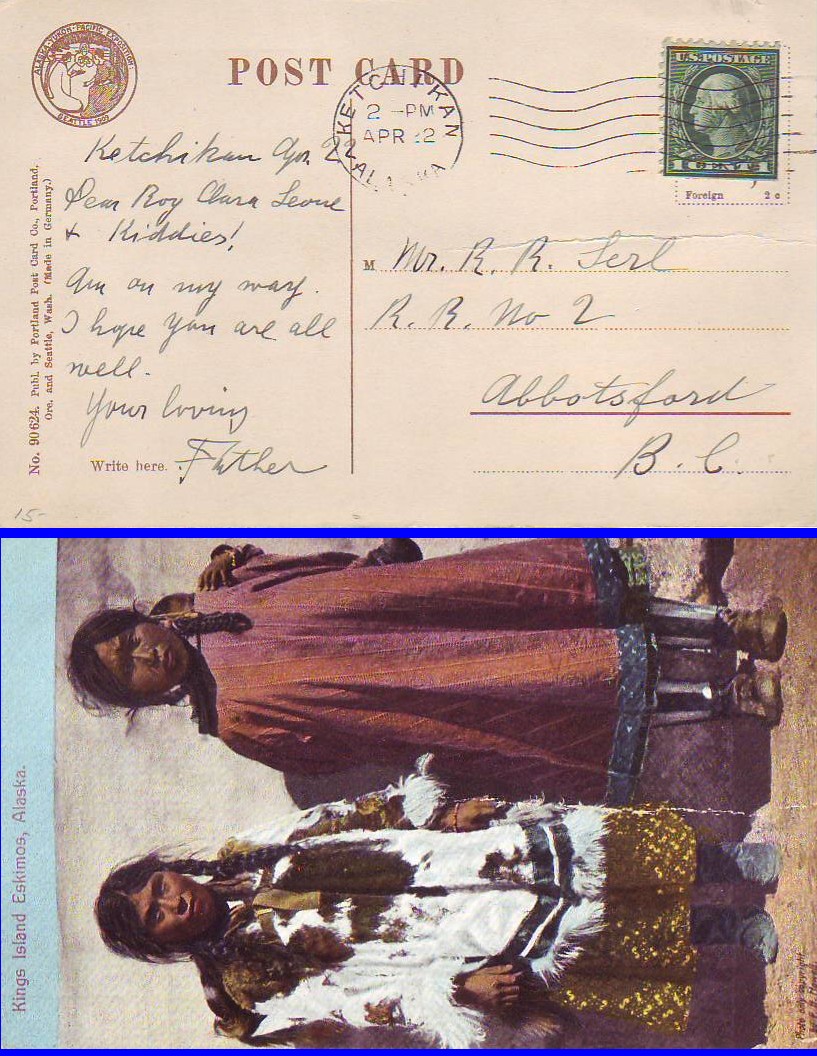 ALASKA-YUKON-PACIFIC EXPOSITION
SEATTLE 1909
POST CARD
KETCHIKAN
2 -PM
APR 22
ALASKA
U.S. POSTAGE
1 CENT 1
Foreign 2 c
Ketchikan Apr. 22
Dear Roy Clara Leone
& Kiddies!
Am on my way.
I hope you are all
well.
Your loving
Father
Write here.
M Mr. R. R. Serl
R. R. No 2
Abbotsford
B. C.
No. 90624. Publ. by Portland Post Card Co., Portland,
Ore. and Seattle, Wash. (Made in Germany.)
15-
Kings Island Eskimos, Alaska.
Photo only copyright